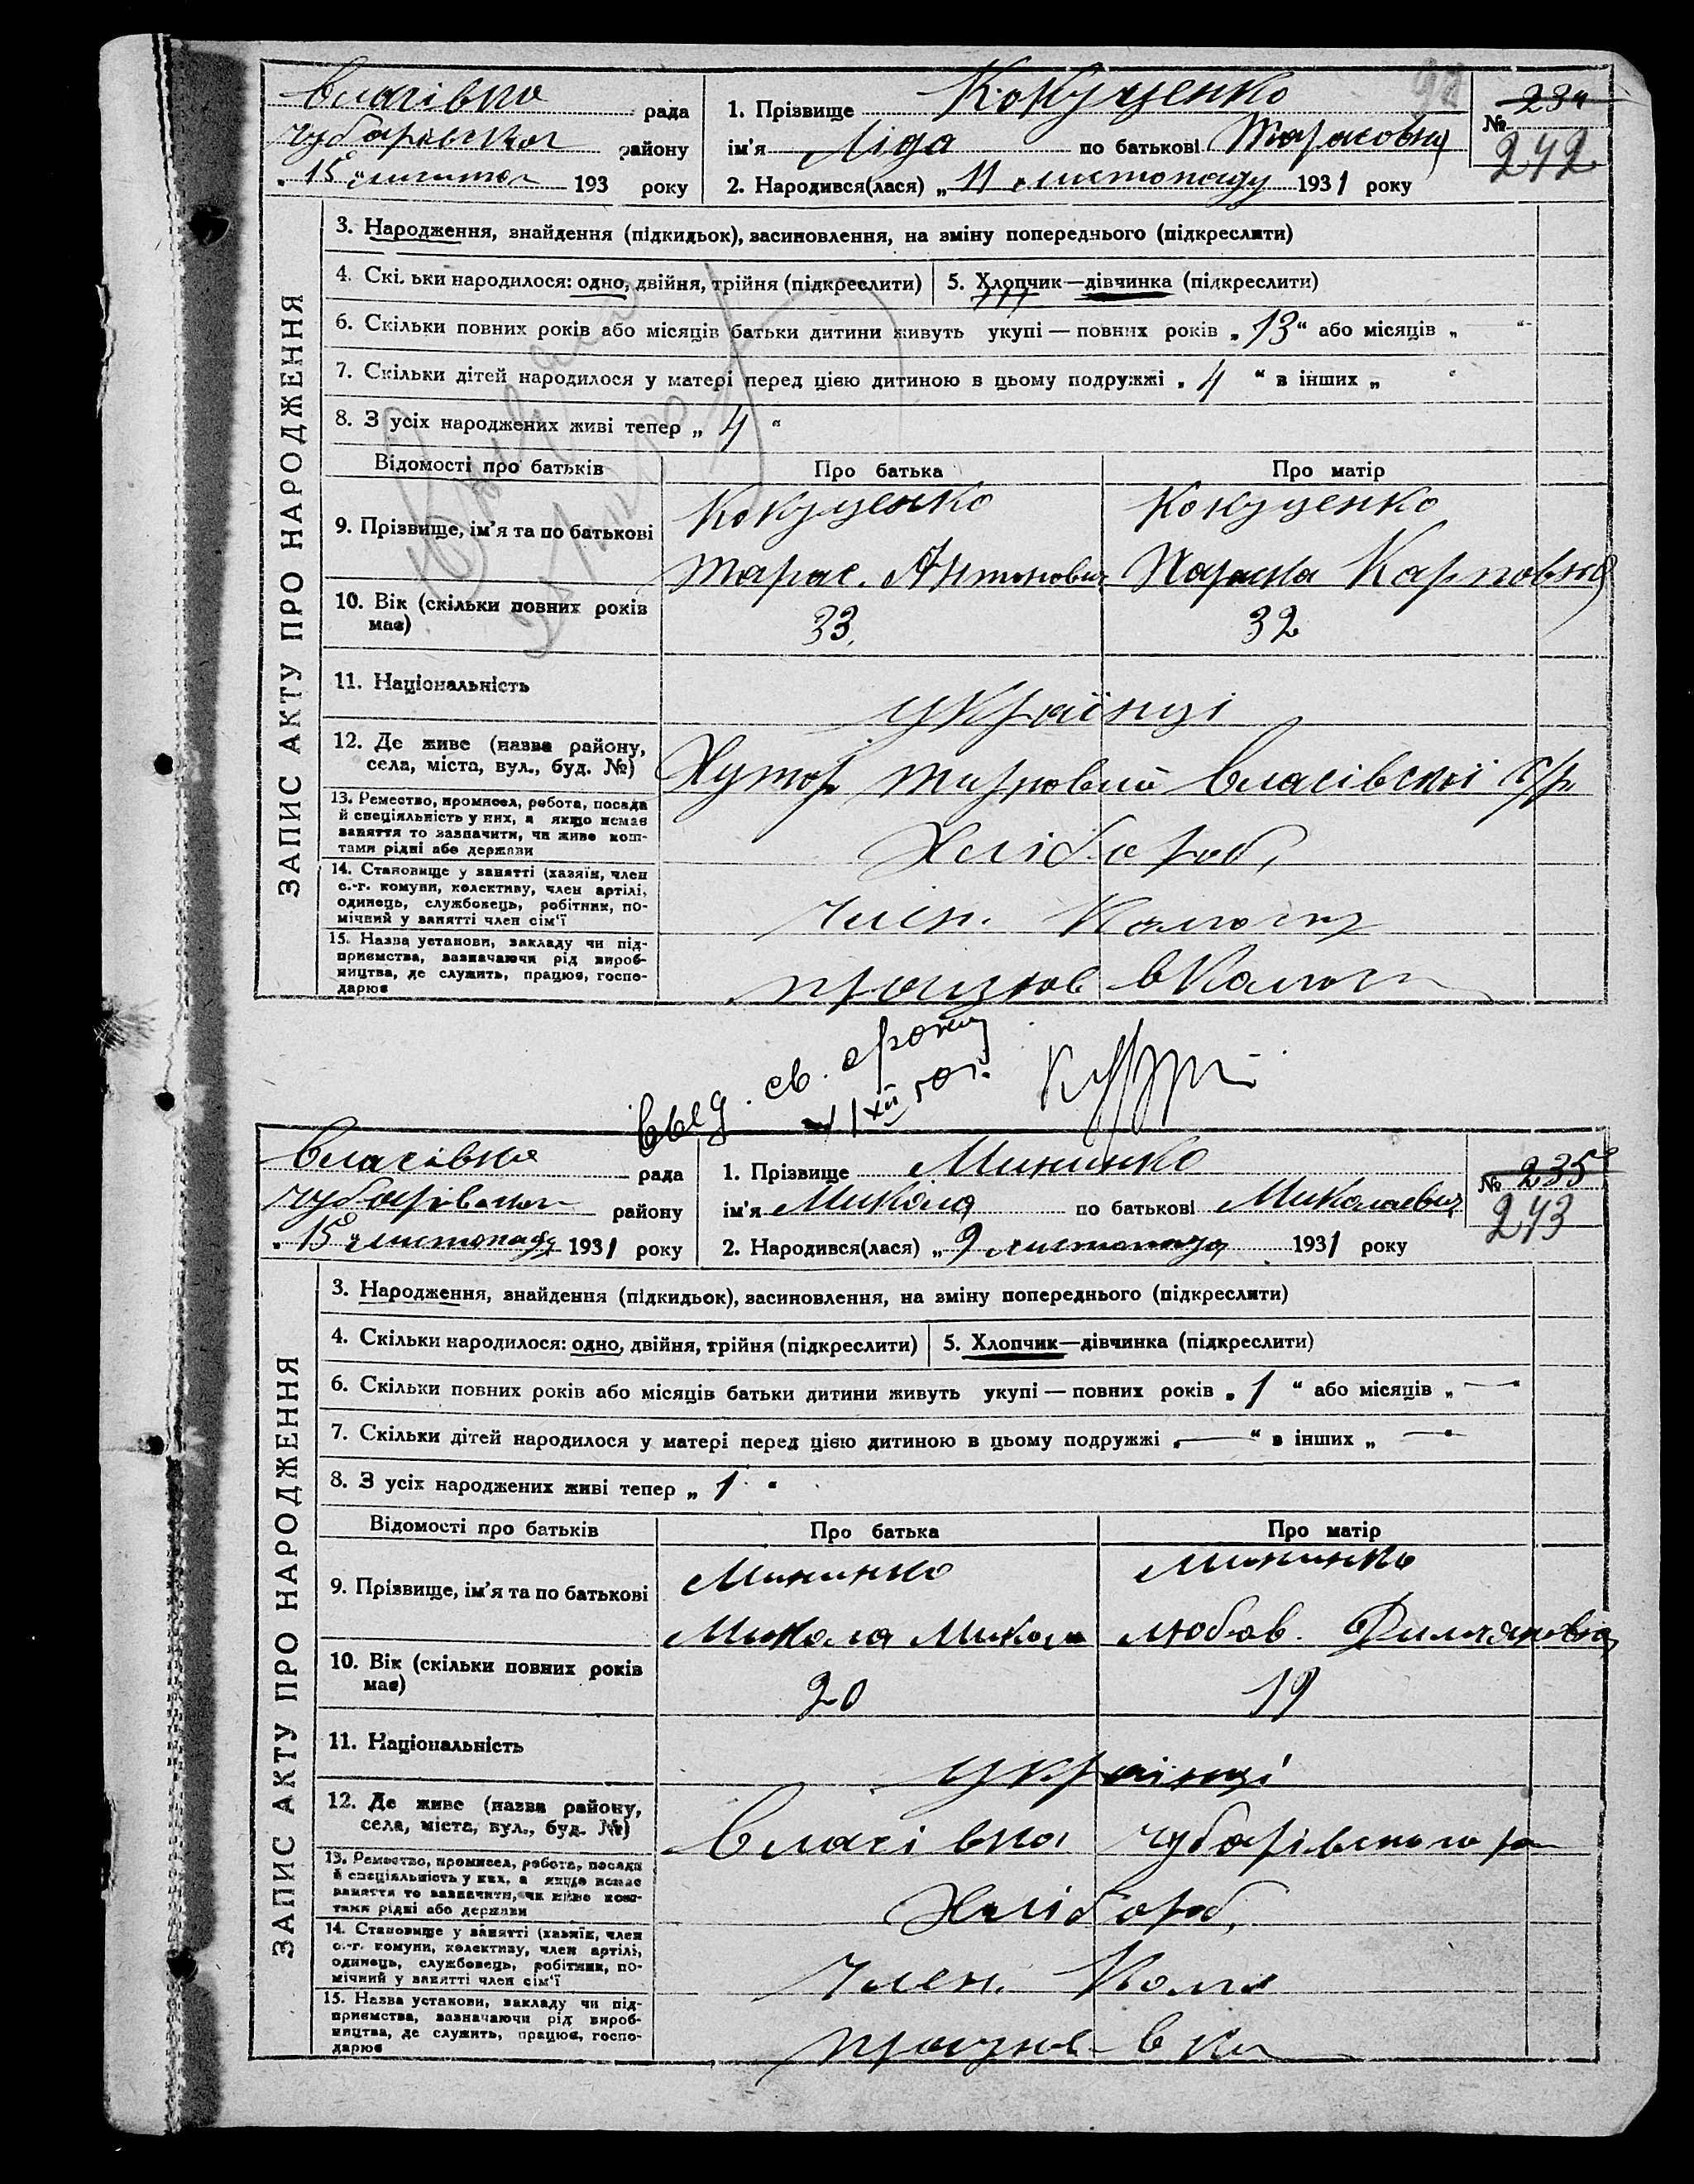 92
Власівка рада
Чубарівський району
„15" листопа 193 року
1. Прізвище Кокуценко
ім'я Ліда по батькові Тарасовна
2. Народився(лася) „11 листопаду 1931 року
№ 234
242
ЗАПИС АКТУ ПРО НАРОДЖЕННЯ
3. Народження, знайдення (підкидьок), засиновлення, на зміну попереднього (підкреслити)
4. Скільки народилося: одно, двійня, трійня (підкреслити) 5. Хлопчик—дівчинка (підкреслити)
6. Скільки повних років або місяців батьки дитини живуть укупі — повних років „13" або місяців „—"
7. Скільки дітей народилося у матері перед цією дитиною в цьому подружжі „4" в інших „ "
8. З усіх народжених живі тепер „4"
Відомості про батьків Про батька Про матір
9. Прізвище, ім'я та по батькові
Кокуценко Кокуценко
Тарас Антонович Параска Карповна
10. Вік (скільки повних років має) 33. 32
11. Національність українці
12. Де живе (назва району, села, міста, вул., буд. №) Хутор Власівської с/р
13. Ремество, промисел, робота, посада й спеціяльність у них, а якщо немає заняття то зазначити, чи живе коштами рідні або держави
Хлібороб,
14. Становище у занятті (хазяїн, член с.-г. комуни, колективу, член артілі, одинець, службовець, робітник, помічний у занятті член сім'ї
Член. Колгоспу
15. Назва установи, закладу чи підприємства, зазначаючи рід виробництва, де служить, працює, господарює
працює в Колгосп
Выд. св. сроком
1 XII 50 г.
Власівка рада
Чубарівський району
„15" листопаду 1931 року
1. Прізвище Мининко
ім'я Микола по батькові Миколаевич
2. Народився(лася) „9 листопаду 1931 року
№ 235
243
ЗАПИС АКТУ ПРО НАРОДЖЕННЯ
3. Народження, знайдення (підкидьок), засиновлення, на зміну попереднього (підкреслити)
4. Скільки народилося: одно, двійня, трійня (підкреслити) 5. Хлопчик—дівчинка (підкреслити)
6. Скільки повних років або місяців батьки дитини живуть укупі — повних років „1" або місяців „—"
7. Скільки дітей народилося у матері перед цією дитиною в цьому подружжі „—" в інших „—"
8. З усіх народжених живі тепер „1"
Відомості про батьків Про батька Про матір
9. Прізвище, ім'я та по батькові
Мининко Мининко
Микола Микола Любов.
10. Вік (скільки повних років має) 20 19
11. Національність українці
12. Де живе (назва району, села, міста, вул., буд. №) Власівка Чубарівського ра
13. Ремество, промисел, робота, посада й спеціяльність у них, а якщо немає заняття то зазначити, чи живе коштами рідні або держави
Хлібороб,
14. Становище у занятті (хазяїн, член с.-г. комуни, колективу, член артілі, одинець, службовець, робітник, помічний у занятті член сім'ї
Член. Колг
15. Назва установи, закладу чи підприємства, зазначаючи рід виробництва, де служить, працює, господарює
працює в Ко